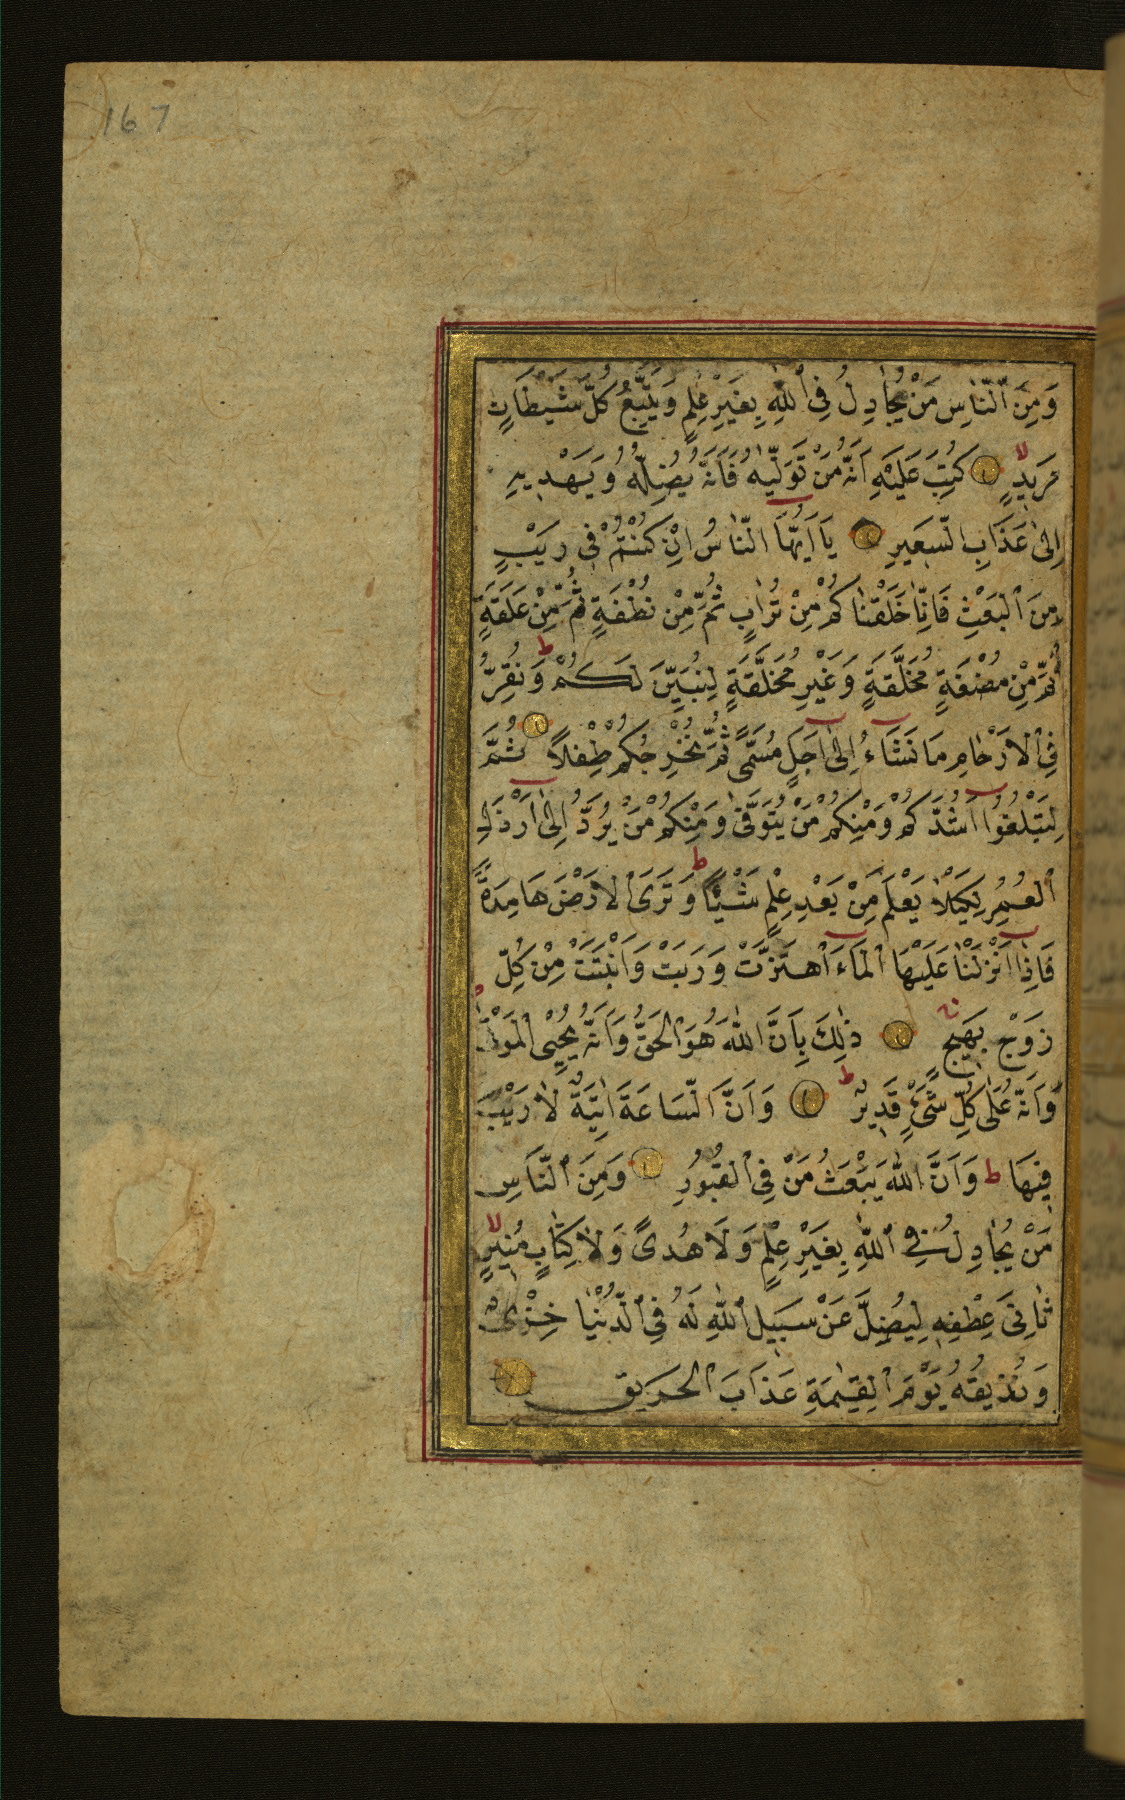 167
وَمِنَ ٱلنَّاسِ مَنْ يُجَادِلُ فِى ٱللّٰهِ بِغَيْرِ عِلْمٍ وَيَتَّبِعُ كُلَّ شَيْطَانٍ
مَرِيدٍ لا كُتِبَ عَلَيْهِ اَنَّهُ مَنْ تَوَلَّيٰهُ فَاَنَّهُ يُضِلُّهُ وَيَهْدِيهِ
اِلىٰ عَذَابِ السَّعِيرِ يَا اَيُّهَا النَّاسُ اِنْ كُنْتُمْ فِى رَيْبٍ
مِنَ ٱلْبَعْثِ فَاِنَّا خَلَقْنَاكُمْ مِنْ تُرَابٍ ثُمَّ مِنْ نُطْفَةٍ ثُمَّ مِنْ عَلَقَةٍ
ثُمَّ مِنْ مُضْغَةٍ مُخَلَّقَةٍ وَغَيْرِ مُخَلَّقَةٍ لِنُبَيِّنَ لَكُمْ ط وَنُقِرُّ
فِى ٱلْاَرْحَامِ مَا نَشَاءُ اِلىٰ اَجَلٍ مُسَمًّى ثُمَّ نُخْرِجُكُمْ طِفْلاً ثُمَّ
لِتَبْلُغُوا اَشُدَّكُمْ وَمِنْكُمْ مَنْ يُتَوَفّٰى وَمِنْكُمْ مَنْ يُرَدُّ اِلىٰ اَرْذَلِ
ٱلْعُمُرِ لِكَيْلاَ يَعْلَمَ مِنْ بَعْدِ عِلْمٍ شَيْئًا ط وَتَرَى ٱلْاَرْضَ هَامِدَةً
فَاِذَا اَنْزَلْنَا عَلَيْهَا ٱلْمَاءَ ٱهْتَزَّتْ وَرَبَتْ وَاَنْبَتَتْ مِنْ كُلِّ
زَوْجٍ بَهِيجٍ ذٰلِكَ بِاَنَّ اللّٰهَ هُوَ ٱلْحَقُّ وَاَنَّهُ يُحْيِى ٱلْمَوْتىٰ
وَاَنَّهُ عَلىٰ كُلِّ شَىْءٍ قَدِيرٌ ط وَاَنَّ ٱلسَّاعَةَ اٰتِيَةٌ لاَ رَيْبَ
فِيهَا ط وَاَنَّ اللّٰهَ يَبْعَثُ مَنْ فِى ٱلْقُبُورِ وَمِنَ ٱلنَّاسِ
مَنْ يُجَادِلُ فِى ٱللّٰهِ بِغَيْرِ عِلْمٍ وَلَا هُدىً وَلاَ كِتَابٍ مُنِيرٍ لا
ثَانِىَ عِطْفِهِ لِيُضِلَّ عَنْ سَبِيلِ ٱللّٰهِ لَهُ فِى ٱلدُّنْيَا خِزْىٌ
وَنُذِيقُهُ يَوْمَ ٱلْقِيٰمَةِ عَذَابَ ٱلْحَرِيقِ